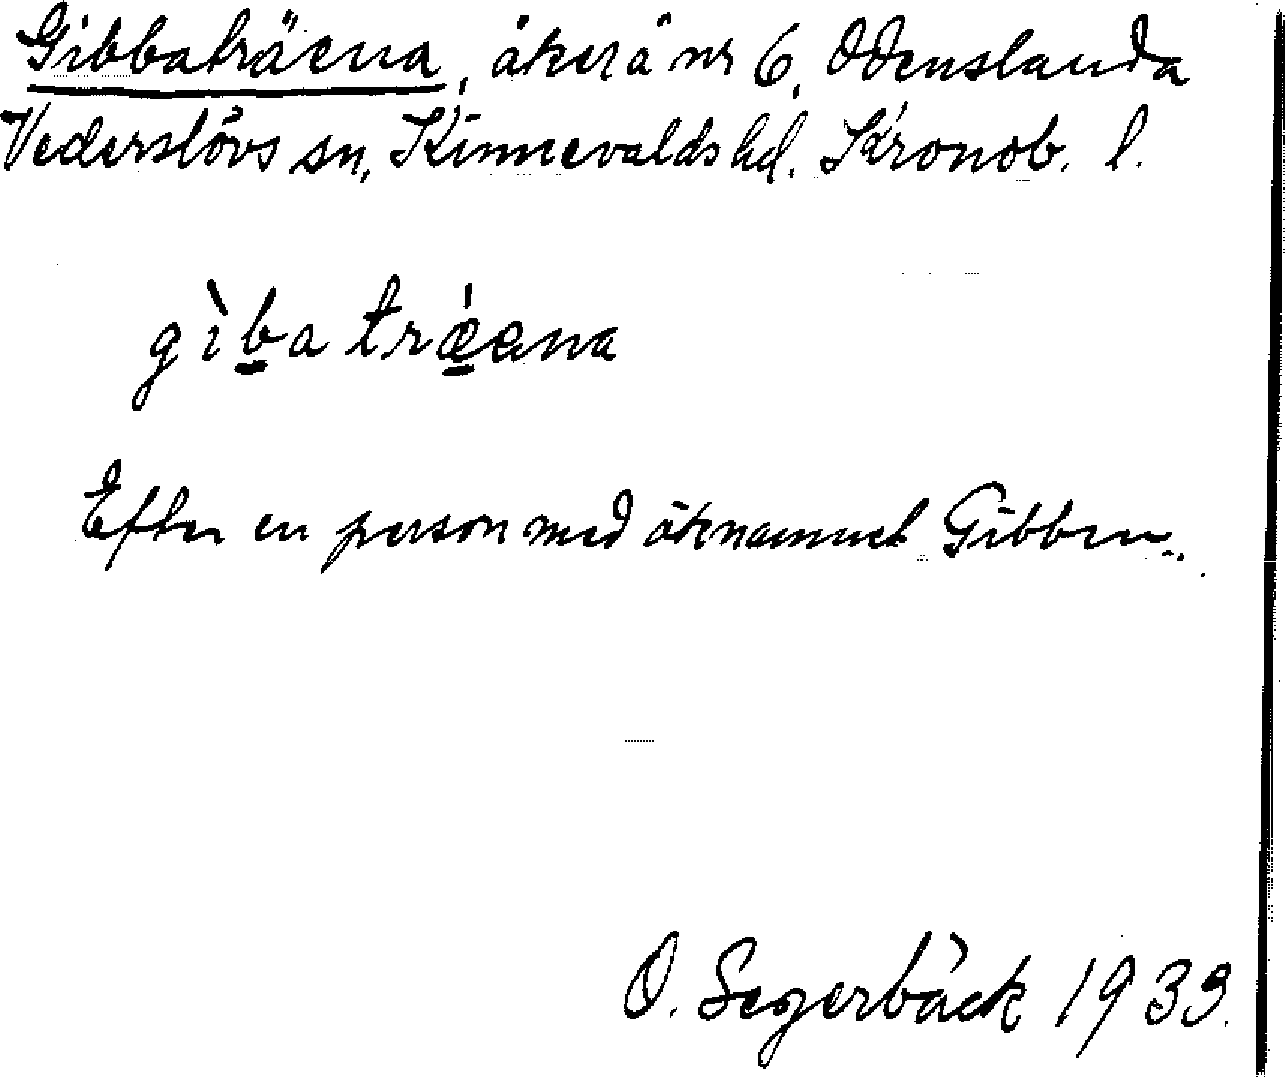 Gibbaträena, åker å nr 6, Odenslanda
Vederslövs sn, Kinnevalds hd. Kronob. l.
gìba træ̀ena
Efter en person med öknamnet Gibben.
O. Segerbäck 1933.